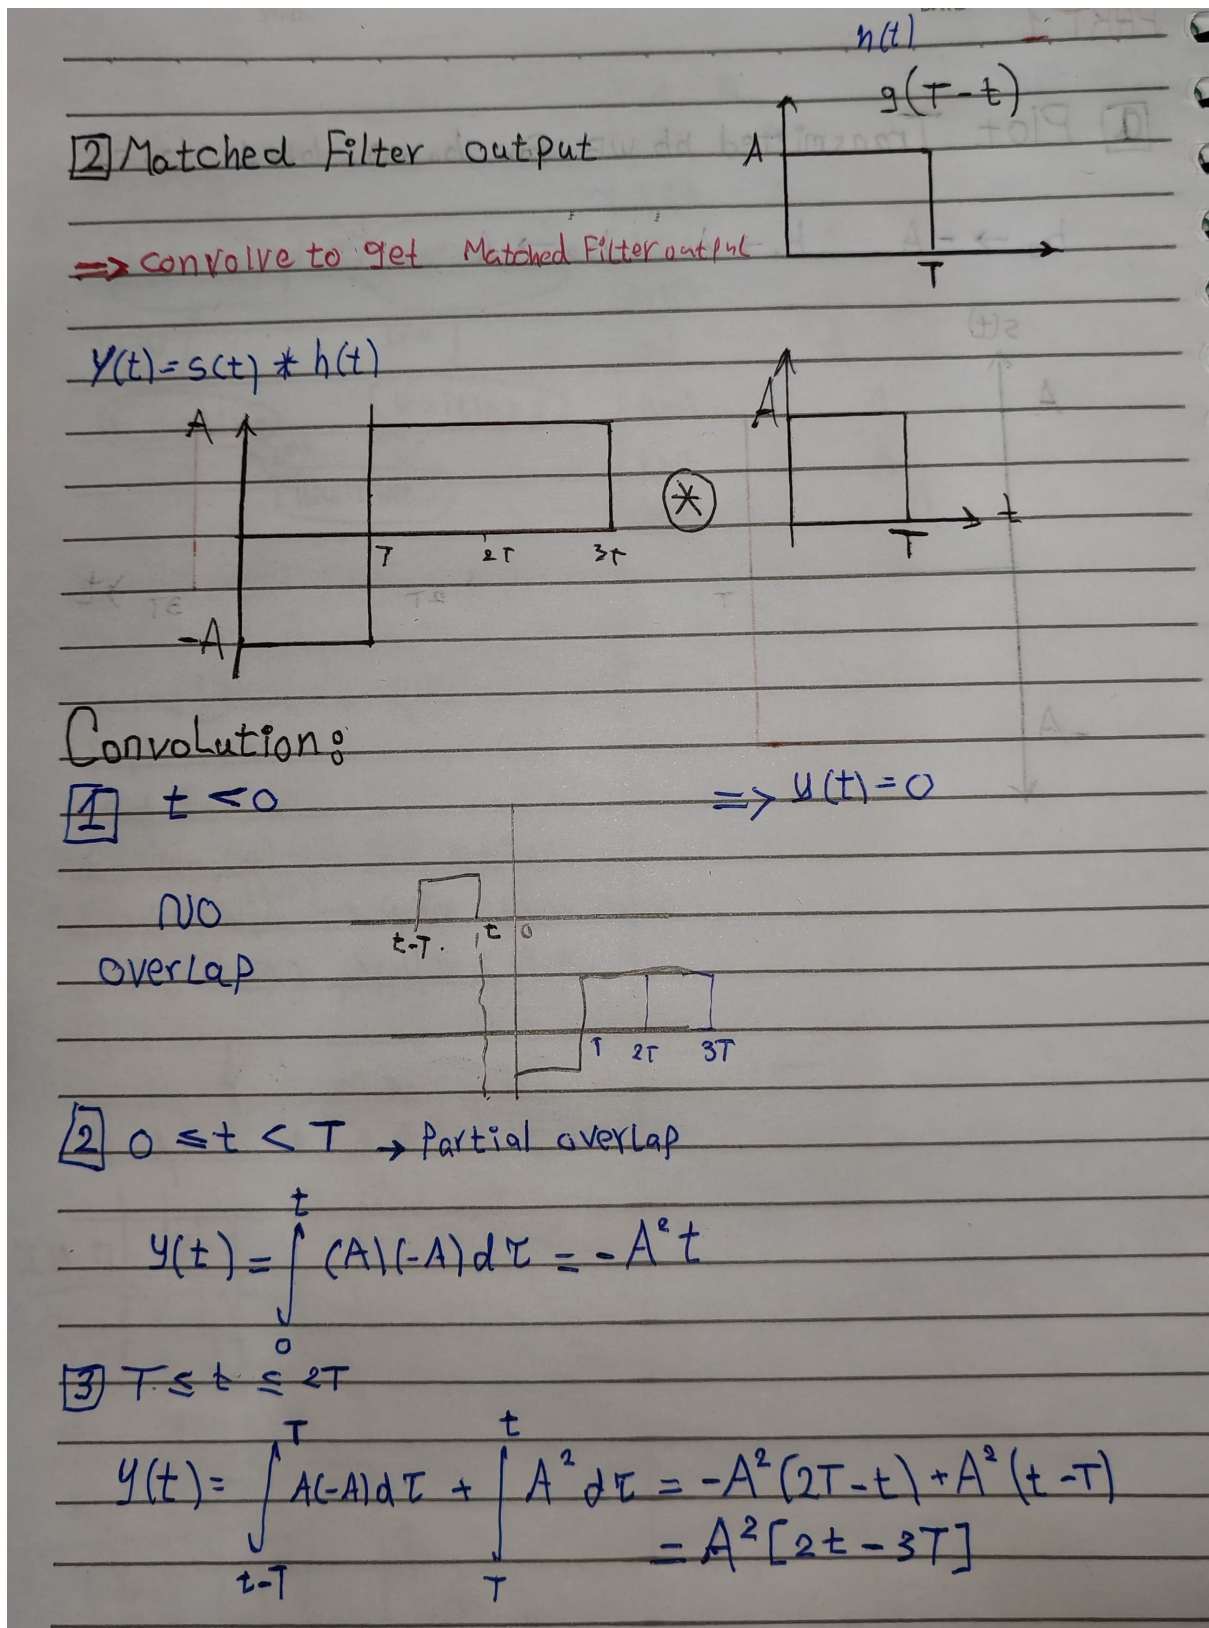 h(t)
g(T-t)
2 Matched Filter output
A
T
=> convolve to get Matched Filter output
y(t) = s(t) * h(t)
A
T
2T
3T
-A
*
A
T
t
Convolution:
1 t < 0 => y(t) = 0
NO
overlap
t-T
t
0
T
2T
3T
2 0 ≤ t < T → Partial overlap
y(t) = ∫₀ᵗ (A)(-A)dτ = -A²t
3 T ≤ t ≤ 2T
y(t) = ∫_{t-T}^{T} A(-A)dτ + ∫_{T}^{t} A² dτ = -A²(2T-t) + A²(t-T)
= A²[2t - 3T]